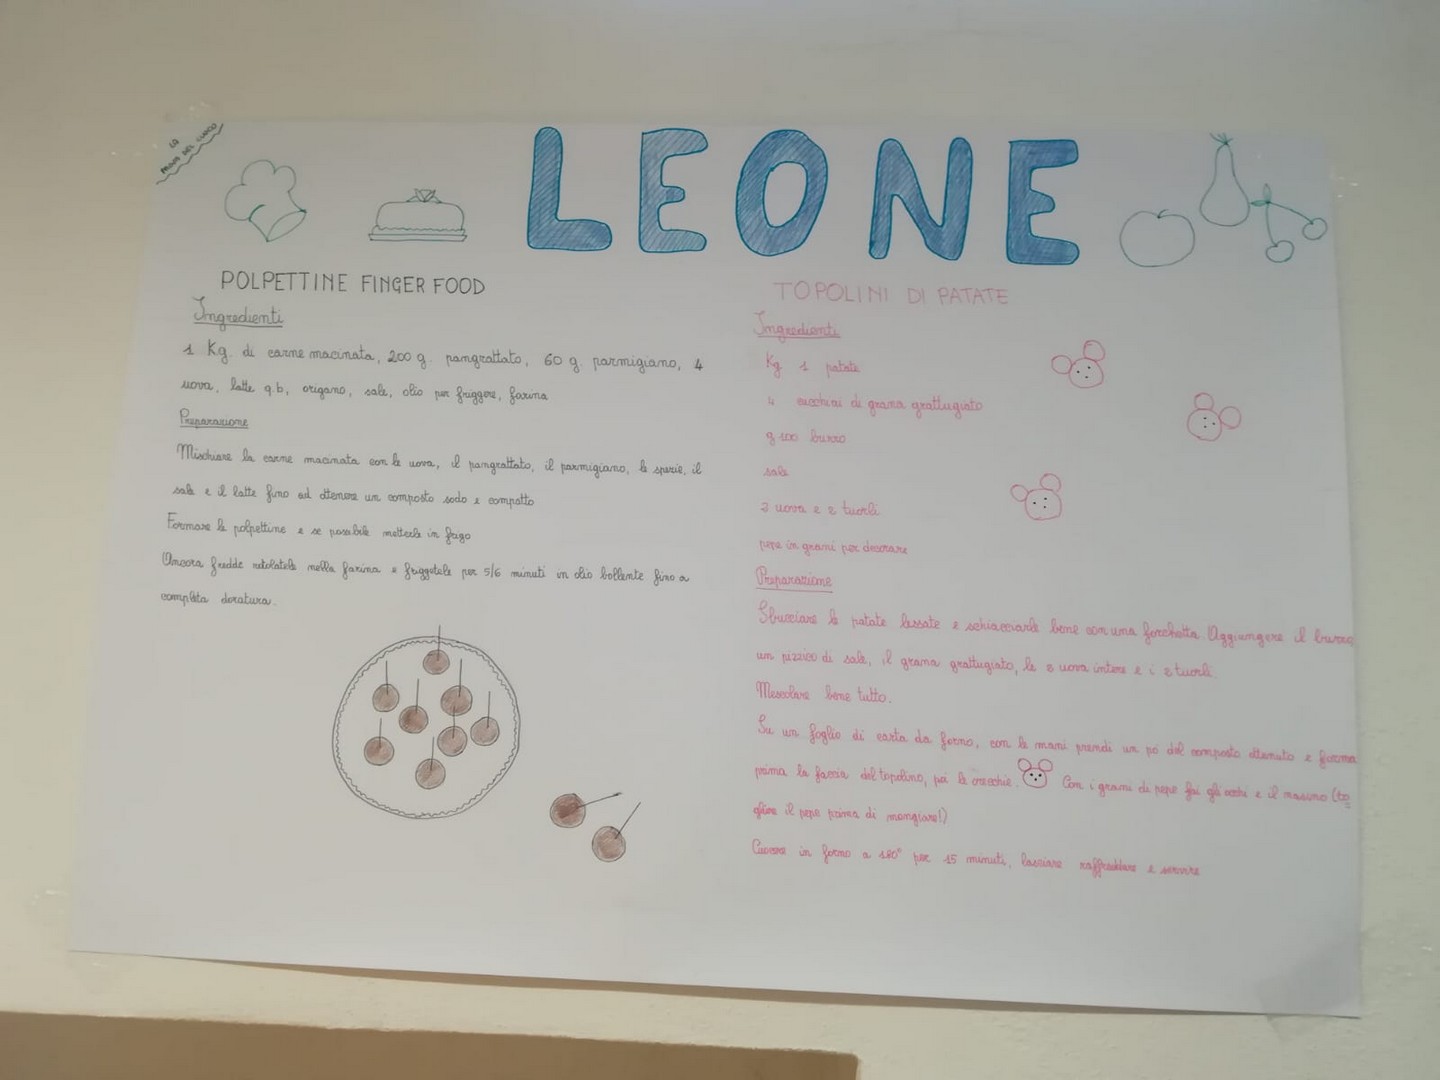 LA
PROVA DEL CUOCO
LEONE
POLPETTINE FINGER FOOD
Ingredienti
1 Kg. di carne macinata, 200 g. pangrattato, 60 g. parmigiano, 4
uova, latte q.b, origano, sale, olio per friggere, farina
Preparazione
Mischiare la carne macinata con le uova, il pangrattato, il parmigiano, le spezie, il
sale e il latte fino ad ottenere un composto sodo e compatto
Formare le polpettine e se possibile metterle in frigo
Ancora fredde rotolatele nella farina e friggetele per 5/6 minuti in olio bollente fino a
completa doratura.
TOPOLINI DI PATATE
Ingredienti
Kg 1 patate
4 cucchiai di grana grattugiato
g 100 burro
sale
2 uova e 2 tuorli
pepe in grani per decorare
Preparazione
Sbucciare le patate lessate e schiacciarle bene con una forchetta. Aggiungere il burro
un pizzico di sale, il grana grattugiato, le 2 uova intere e i 2 tuorli.
Mescolare bene tutto.
Su un foglio di carta da forno, con le mani prendi un pò del composto ottenuto e forma
prima la faccia del topolino, poi le orecchie. Con i grani di pepe fai gli occhi e il nasino (to
gliere il pepe prima di mangiare!)
Cuocere in forno a 180° per 15 minuti, lasciare raffreddare e servire